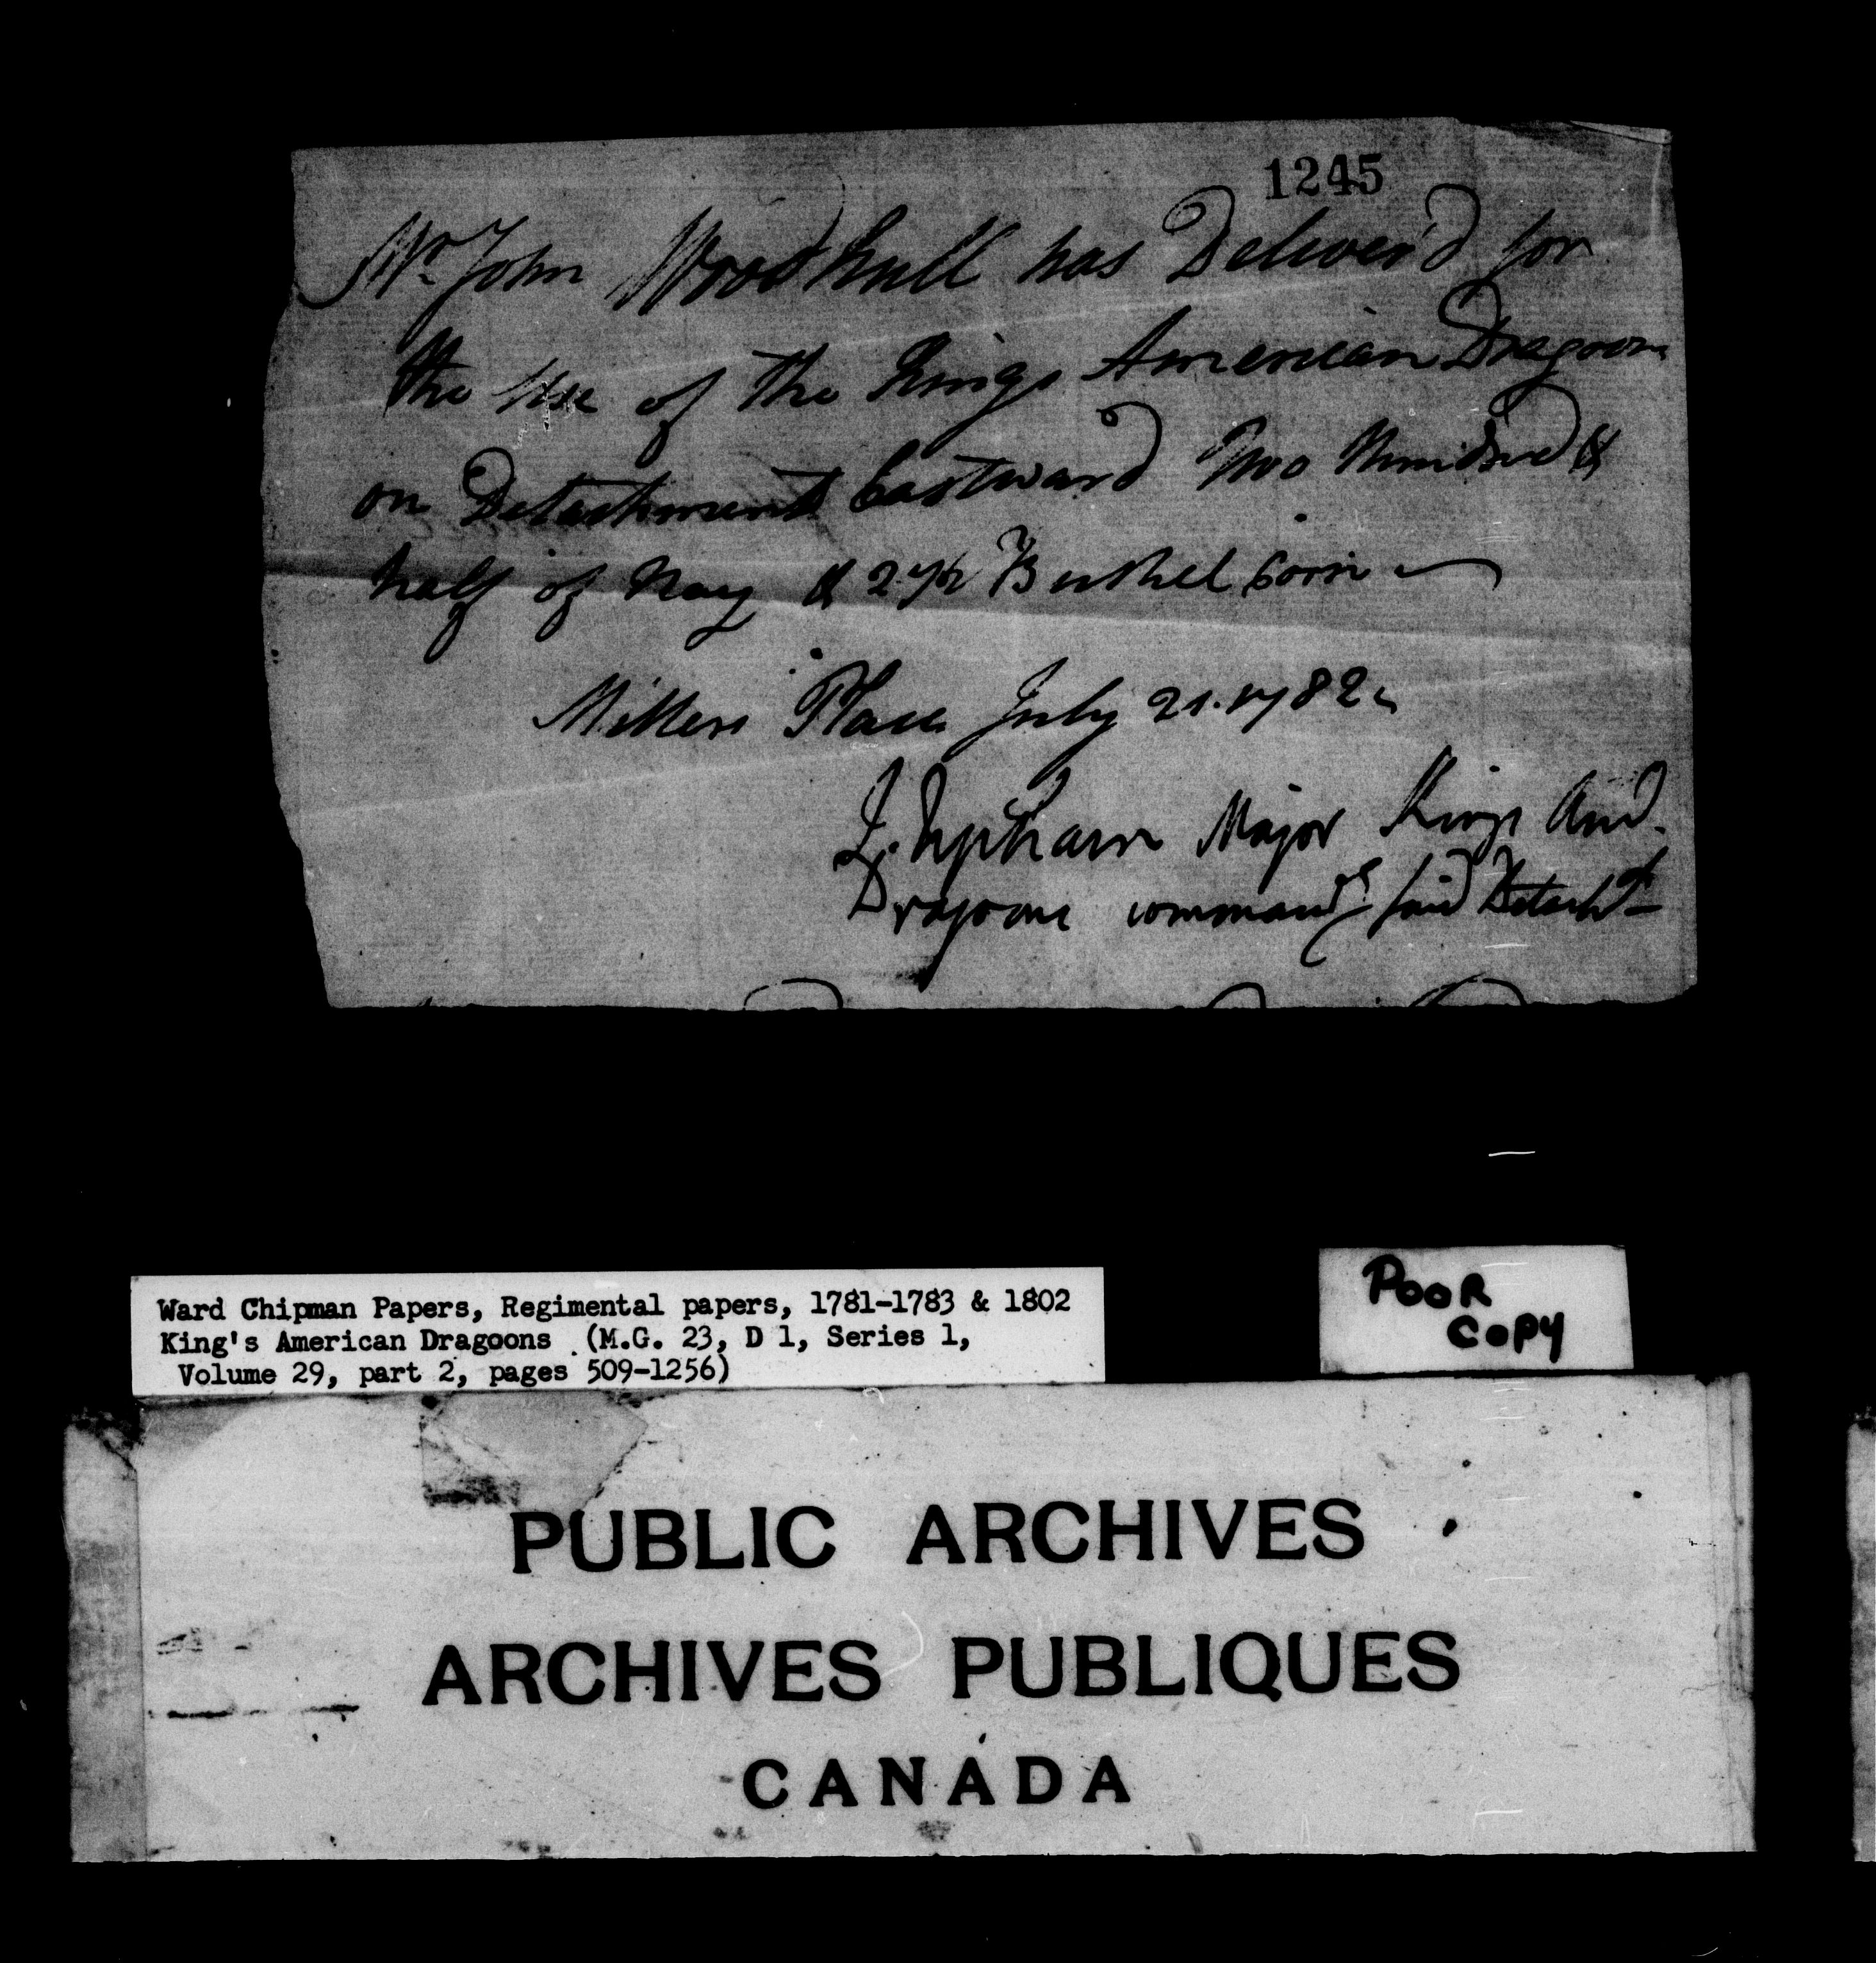 1245
Mr. John Woodhull has Deliver'd for
the Use of the Kings American Dragoons
on Detachment Eastward Two Hundred &
half of Hay & 2 1/2 Bushel Corn
Millers Place July 21. 1782
J. Upham Major Kings Am.
Dragoons commandg said Detacht
Ward Chipman Papers, Regimental papers, 1781-1783 & 1802
King's American Dragoons (M.G. 23, D 1, Series 1,
Volume 29, part 2, pages 509-1256)
POOR
COPY
PUBLIC ARCHIVES
ARCHIVES PUBLIQUES
CANADA